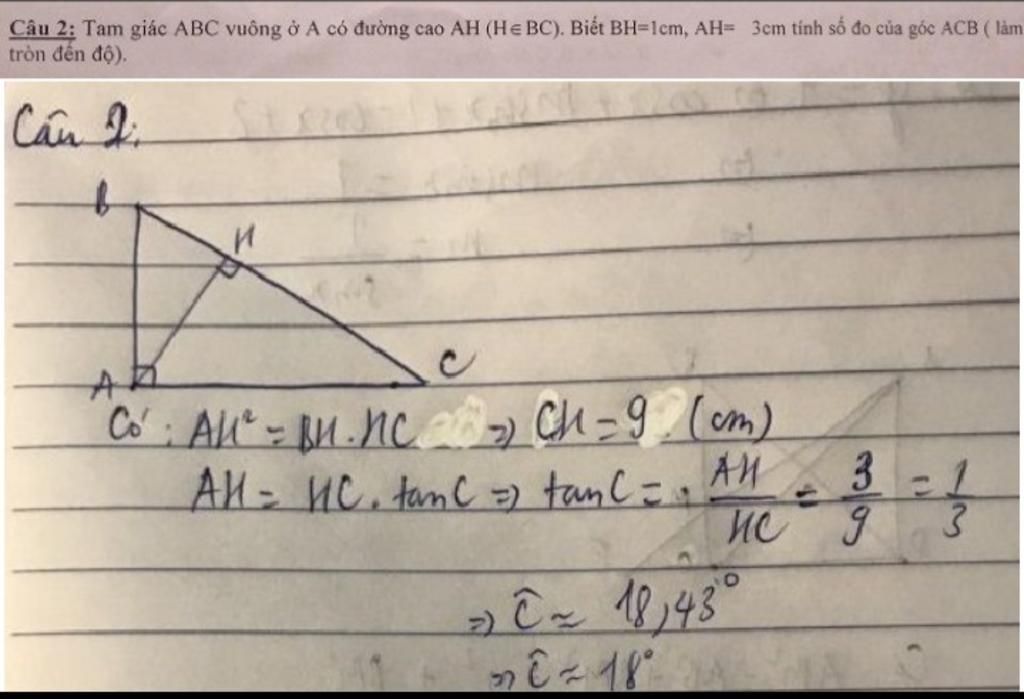 Câu 2: Tam giác ABC vuông ở A có đường cao AH (H∈BC). Biết BH=1cm, AH= 3cm tính số đo của góc ACB ( làm
tròn đến độ).
Câu 2:
B
H
A
C
Có: AH² = BH.HC => CH = 9 (cm)
AH = HC.tanC => tanC = AH/HC = 3/9 = 1/3
=> Ĉ ≈ 18,43°
=> Ĉ ≈ 18°